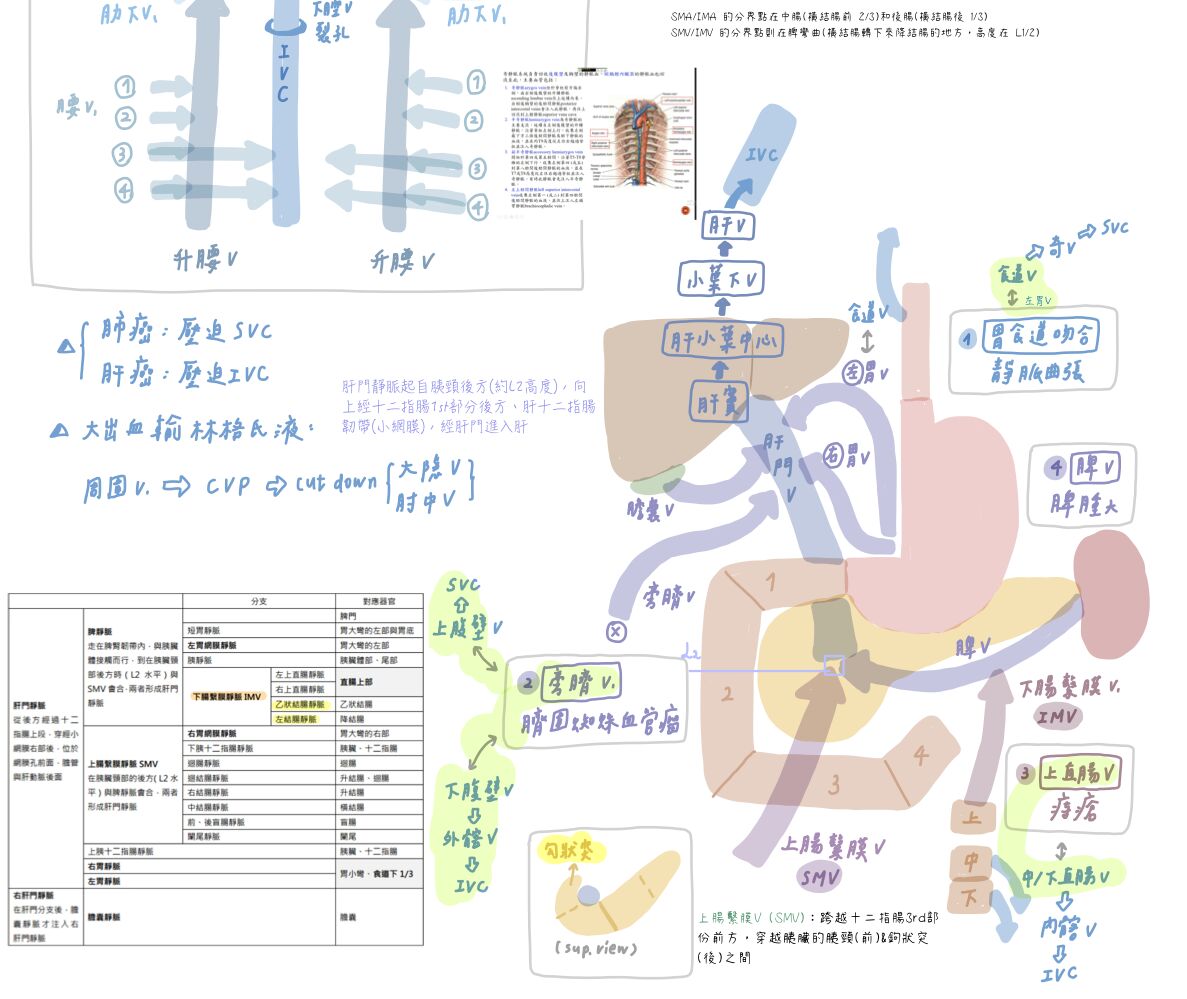 SMA/IMA 的分界點在中腸(橫結腸前 2/3)和後腸(橫結腸後 1/3)
SMV/IMV 的分界點則在脾彎曲(橫結腸轉下來降結腸的地方，高度在 L1/2)
肋下V.
下腔V
裂孔
肋下V.
IVC
腰V.
①
②
③
④
①
②
③
④
升腰V
升腰V
肺癌：壓迫SVC
肝癌：壓迫IVC
大出血輸林格氏液：
周圍V. ⇨ CVP ⇨ cut down
大隱V
肘中V
肝門靜脈起自胰頸後方(約L2高度)，向
上經十二指腸1st部分後方、肝十二指腸
韌帶(小網膜)，經肝門進入肝
IVC
肝V
小葉下V
肝小葉中心
肝竇
肝門V
膽囊V
食道V
左胃V
右胃V
旁臍V
脾V
L2
1
2
3
4
SVC
奇V
食道V
左胃V
1 胃食道吻合
靜脈曲張
4 脾V
脾腫大
SVC
上腹壁V
2 旁臍V.
臍圍蜘蛛血管瘤
下腹壁V
外髂V
IVC
下腸繫膜V.
IMV
3 上直腸V
痔瘡
上
中
下
中/下直腸V
內髂V
IVC
上腸繫膜V
SMV
勾狀突
(sup. view)
上腸繫膜V (SMV)：跨越十二指腸3rd部
份前方，穿越胰臟的胰頸(前)&鉤狀突
(後)之間
分支
對應器官
肝門靜脈
從後方經過十二
指腸上段，穿經小
網膜右部後，位於
網膜孔前面、膽管
與肝動脈後面
脾靜脈
走在脾腎韌帶內，與胰臟
體接觸而行，到在胰臟頸
部後方時(L2 水平)與
SMV 會合，兩者形成肝門
靜脈
脾門
短胃靜脈
胃大彎的左部與胃底
左胃網膜靜脈
胃大彎的左部
胰靜脈
胰臟體部、尾部
下腸繫膜靜脈 IMV
左上直腸靜脈
右上直腸靜脈
直腸上部
乙狀結腸靜脈
乙狀結腸
左結腸靜脈
降結腸
上腸繫膜靜脈 SMV
在胰臟頸部的後方(L2 水
平)與脾靜脈會合，兩者
形成肝門靜脈
右胃網膜靜脈
胃大彎的右部
下胰十二指腸靜脈
胰臟、十二指腸
迴腸靜脈
迴腸
迴結腸靜脈
升結腸、迴腸
右結腸靜脈
升結腸
中結腸靜脈
橫結腸
前、後盲腸靜脈
盲腸
闌尾靜脈
闌尾
上胰十二指腸靜脈
胰臟、十二指腸
右胃靜脈
左胃靜脈
胃小彎、食道下 1/3
右肝門靜脈
在肝門分支後，膽
囊靜脈才注入右
肝門靜脈
膽囊靜脈
膽囊